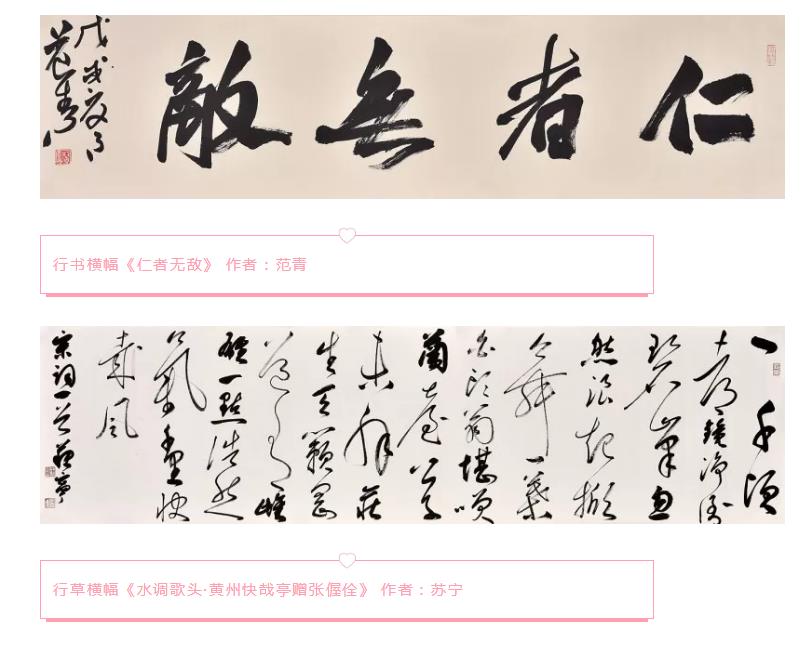 仁者無敵
戊戌夏月
范青
行书横幅《仁者无敌》 作者：范青
一千頃
都鏡净倒
碧峯忽
然浪起掀
舞一葉
白头翁堪咲
蘭台公子
未解莊
生天籟剛
道有雌
雄一點浩然
氣千里快
哉風
宋词一首 蘇寧
行草横幅《水调歌头·黄州快哉亭赠张偓佺》 作者：苏宁